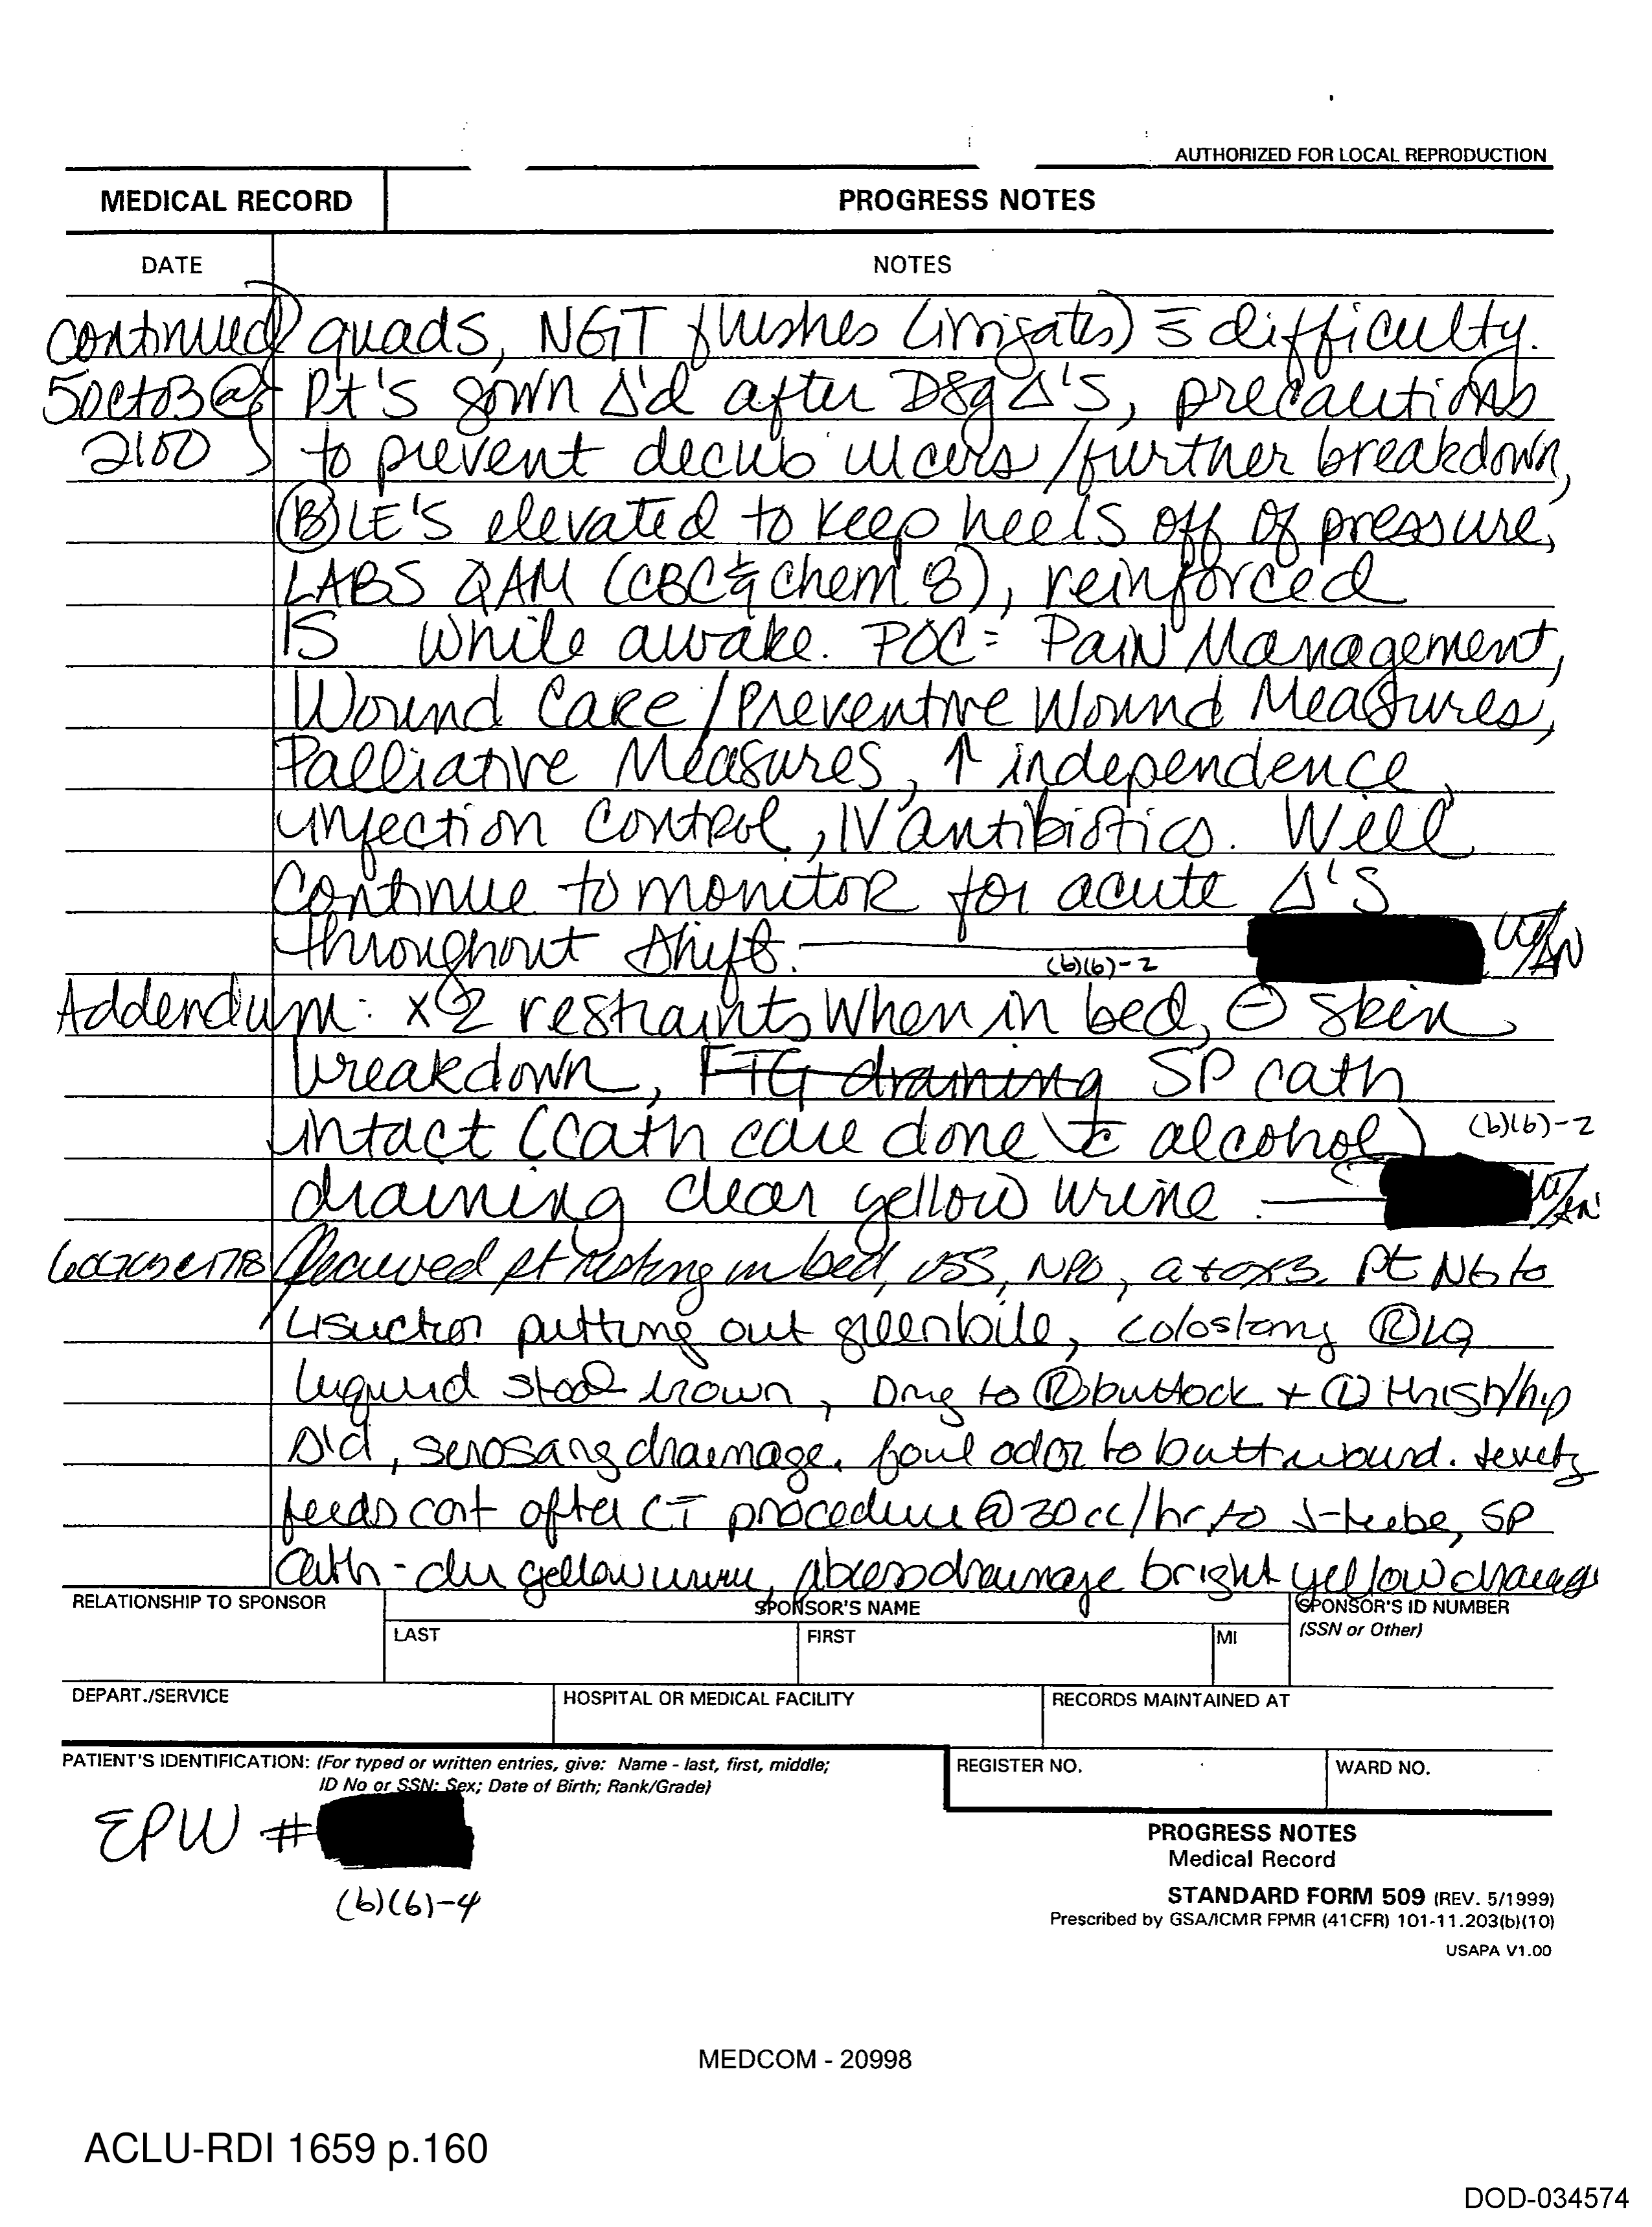 AUTHORIZED FOR LOCAL REPRODUCTION
MEDICAL RECORD PROGRESS NOTES
DATE NOTES
continued quads, NGT flushes (irrigates) s̄ difficulty.
5Oct03 @ Pt's gown Δ'd after Dsg Δ's, precautions
2100 to prevent decub ulcers /further breakdown,
Ⓑ LE's elevated to keep heels off of pressure,
LABS QAM (CBC & Chem 8), reinforced
IS while awake. POC = Pain Management,
Wound Care/Preventive Wound Measures,
Palliative Measures, ↑ independence,
infection control, IV antibiotics. Will
continue to monitor for acute Δ's
throughout shift.
(b)(6)-2
Addendum: x2 restraints when in bed, ⊖ skin
breakdown, FTG draining SP cath
intact (cath care done c̄ alcohol) (b)(6)-2
draining clear yellow urine.
Received pt resting in bed, VSS, NPO, a+ox3. Pt NG to
suction putting out green bile, colostomy Ⓡ LQ
liquid stool brown, Drsg to Ⓡ buttock + Ⓛ thigh/hip
Δ'd, serosang drainage. foul odor to butt wound.
feeds cont after CT procedure @ 30cc/hr to J-tube, SP
Cath - yellow urine, abcess drainage bright yellow drainage
RELATIONSHIP TO SPONSOR SPONSOR'S NAME SPONSOR'S ID NUMBER
LAST FIRST MI (SSN or Other)
DEPART./SERVICE HOSPITAL OR MEDICAL FACILITY RECORDS MAINTAINED AT
PATIENT'S IDENTIFICATION: (For typed or written entries, give: Name - last, first, middle; REGISTER NO. WARD NO.
ID No or SSN; Sex; Date of Birth; Rank/Grade)
EPW #
(b)(6)-4
PROGRESS NOTES
Medical Record
STANDARD FORM 509 (REV. 5/1999)
Prescribed by GSA/ICMR FPMR (41CFR) 101-11.203(b)(10)
USAPA V1.00
MEDCOM - 20998
ACLU-RDI 1659 p.160
DOD-034574